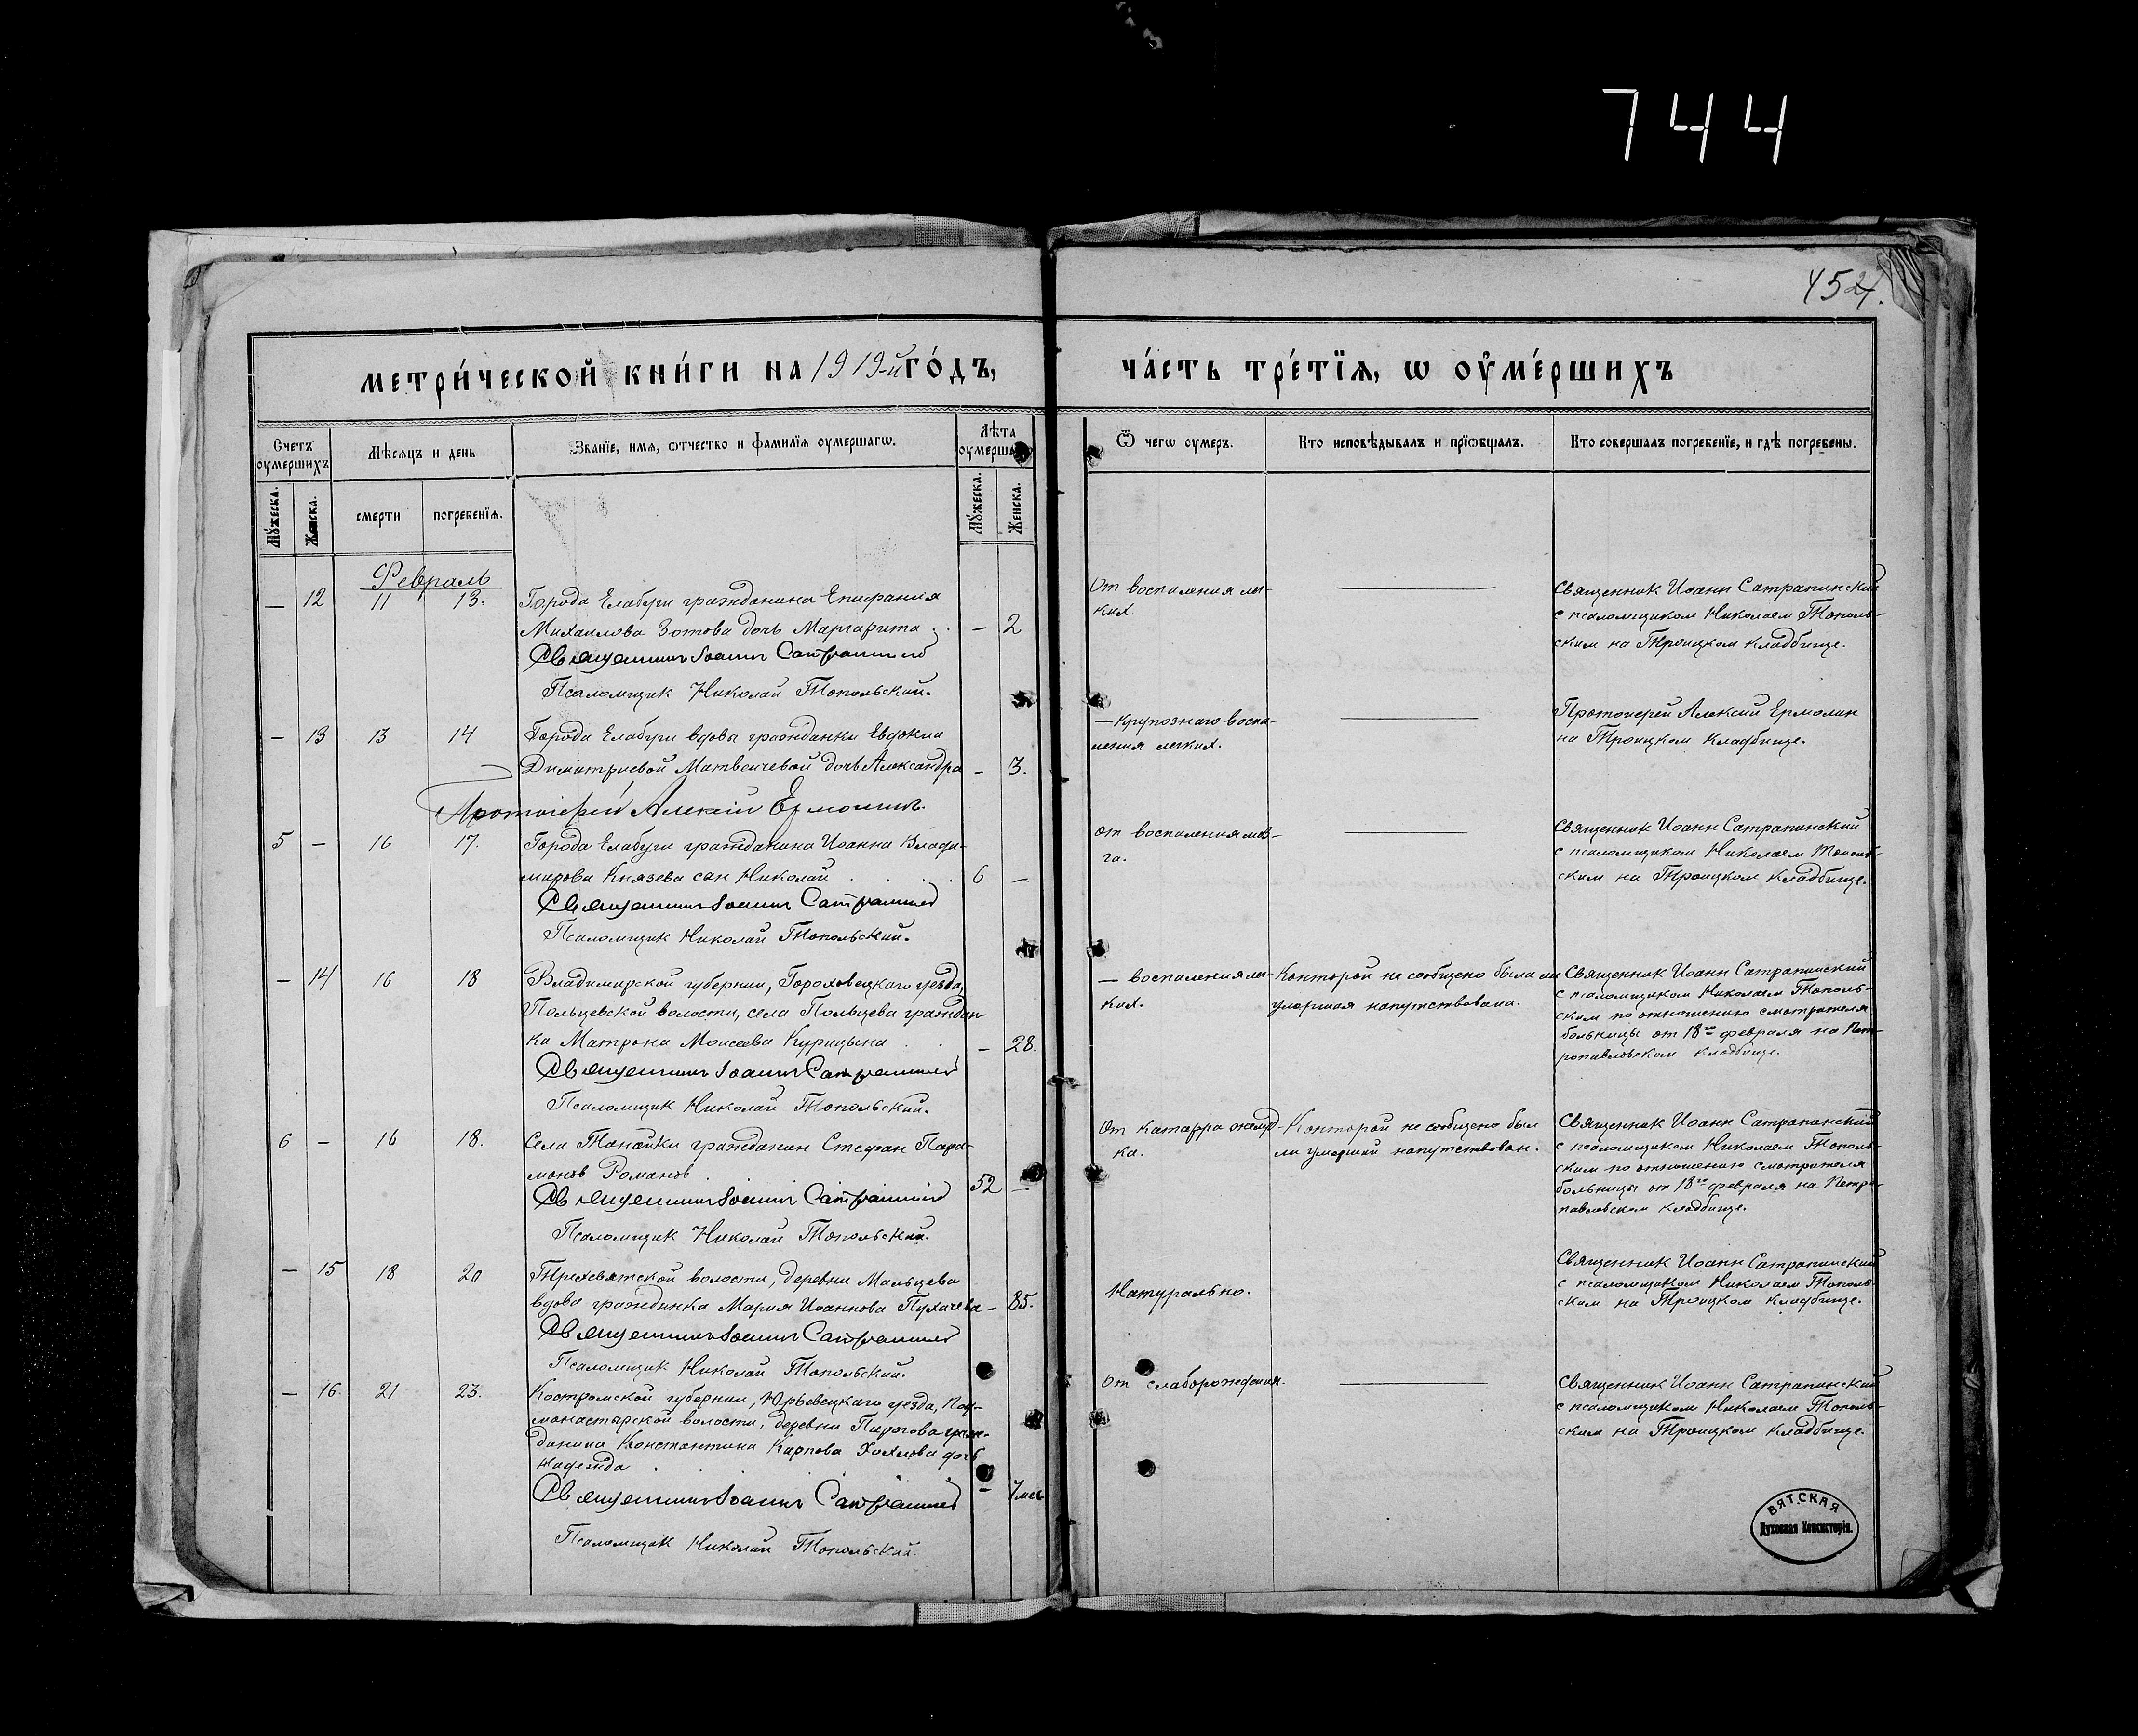 744
452
метри́ческой кни́ги на 1919-й го́дъ,
ча́сть тре́тїѧ, ѡ оу҆ме́ршихъ
Счетъ оумершихъ
Мѣсяцъ и день
Званїе, имѧ, ѿтчество и фамилїѧ оумершагѡ.
Лѣта оумершаго
Ѿ чегѡ оумеръ.
Кто исповѣдывалъ и прїѡбщалъ.
Кто совершалъ погребенїе, и гдѣ погребены.
Мужеска.
Женска.
смерти
погребенїя.
Мужеска.
Женска.
Февраль
— 12 11 13.
Города Елабуги гражданина Епифания
Михаилова Зотова дочь Маргарита . . — 2
Священник Иоанн Сатрапинский
Псаломщик Николай Топольский.
От воспаления лег-
ких.
Священник Иоанн Сатрапинский
с псаломщиком Николаем Тополь-
ским на Троицком кладбище.
— 13 13 14
Города Елабуги вдовы гражданки Евдокии
Димитриевой Матвеичевой дочь Александра — 3.
Протоиерей Алексий Ермолин.
— крупознаго воспа-
ления легких.
Протоиерей Алексий Ермолин
на Троицком кладбище.
5 — 16 17.
Города Елабуги гражданина Иоанна Влади-
мирова Князева сын Николай . . . . 6 —
Священник Иоанн Сатрапинский
Псаломщик Николай Топольский.
от воспаления моз-
га.
Священник Иоанн Сатрапинский
с псаломщиком Николаем Тополь-
ским на Троицком кладбище.
— 14 16 18
Владимирской губернии, Гороховецкаго уезда,
Польцевской волости, села Польцева граждан
ка Матрона Моисеева Курицына . . — 28.
Священник Иоанн Сатрапинский
Псаломщик Николай Топольский.
— воспаления лег-
ких.
Конторой не сообщено была ли
умершая напутствована.
Священник Иоанн Сатрапинский
с псаломщиком Николаем Тополь-
ским по отношению смотрителя
больницы от 18го февраля на Пет-
ропавловском кладбище.
6 — 16 18.
Села Танайки гражданин Стефан Пара-
монов Романов . . . 52 —
Священник Иоанн Сатрапинский
Псаломщик Николай Топольский.
От катарра желуд-
ка.
Конторой не сообщено был
ли умерший напутствован.
Священник Иоанн Сатрапинский
с псаломщиком Николаем Тополь-
ским по отношению смотрителя
больницы от 18го февраля на Петро-
павловском кладбище.
— 15 18 20
Трехсвятской волости, деревни Мальцева
вдова гражданка Мария Иоаннова Пугачева — 85.
Священник Иоанн Сатрапинский
Псаломщик Николай Топольский.
Натурально.
Священник Иоанн Сатрапинский
с псаломщиком Николаем Тополь-
ским на Троицком кладбище.
— 16. 21 23.
Костромской губернии, Юрьевецкаго уезда, Под-
монастырской волости, деревни Пирогова граж-
данина Константина Карпова Хохлова дочь
Надежда . . . . — 7 мес
Священник Иоанн Сатрапинский
Псаломщик Николай Топольский.
От слаборождения.
Священник Иоанн Сатрапинский
с псаломщиком Николаем Тополь-
ским на Троицком кладбище.
ВЯТСКАЯ
Духовная Консисторія.